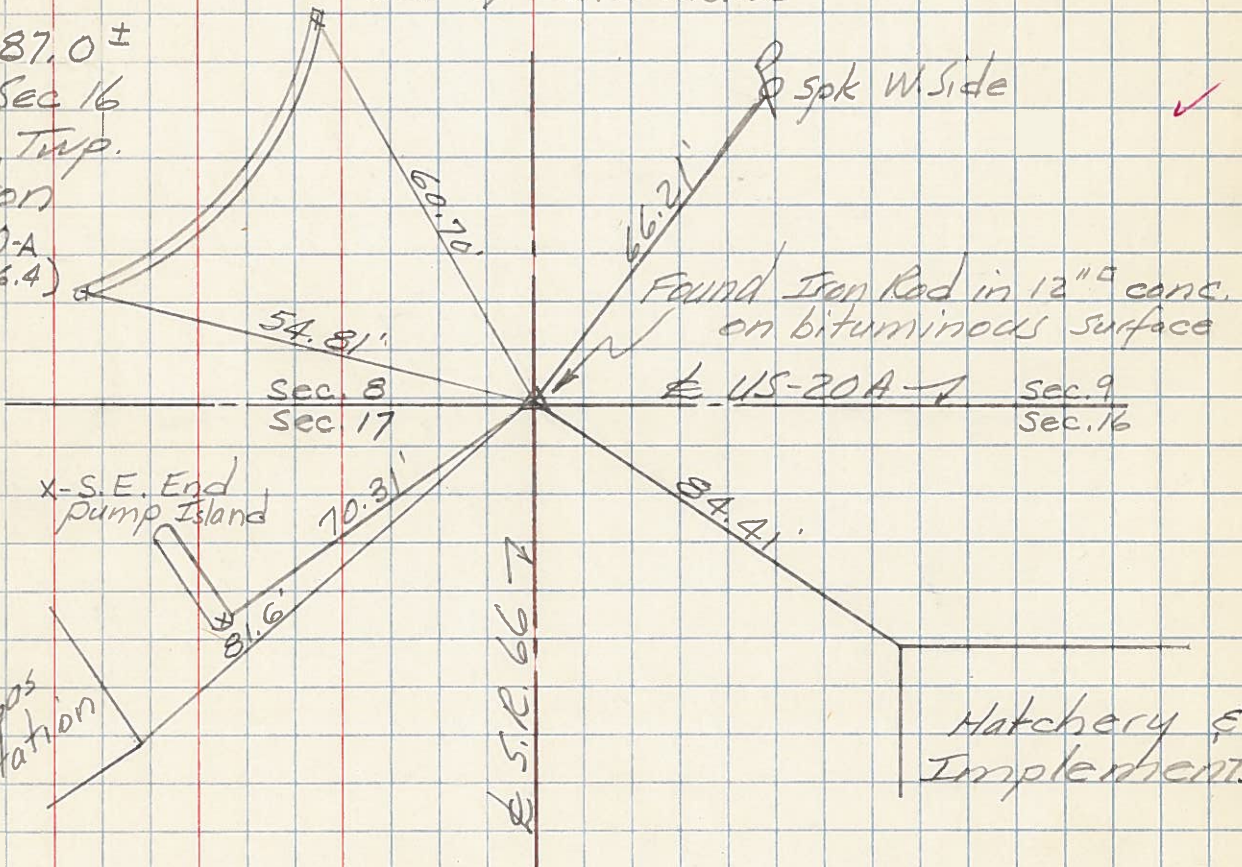 87.0 ±
Sec 16
Twp.
on
0-A
6.4)
spk W. Side
60.70'
66.21'
Found Iron Rod in 12"□ conc.
on bituminous surface
54.81'
Sec. 8
Sec. 17
℄ US-20A
Sec. 9
Sec. 16
x-S.E. End
Pump Island
70.31'
84.41'
81.6'
℄ S.R. 66
Hatchery &
Implement